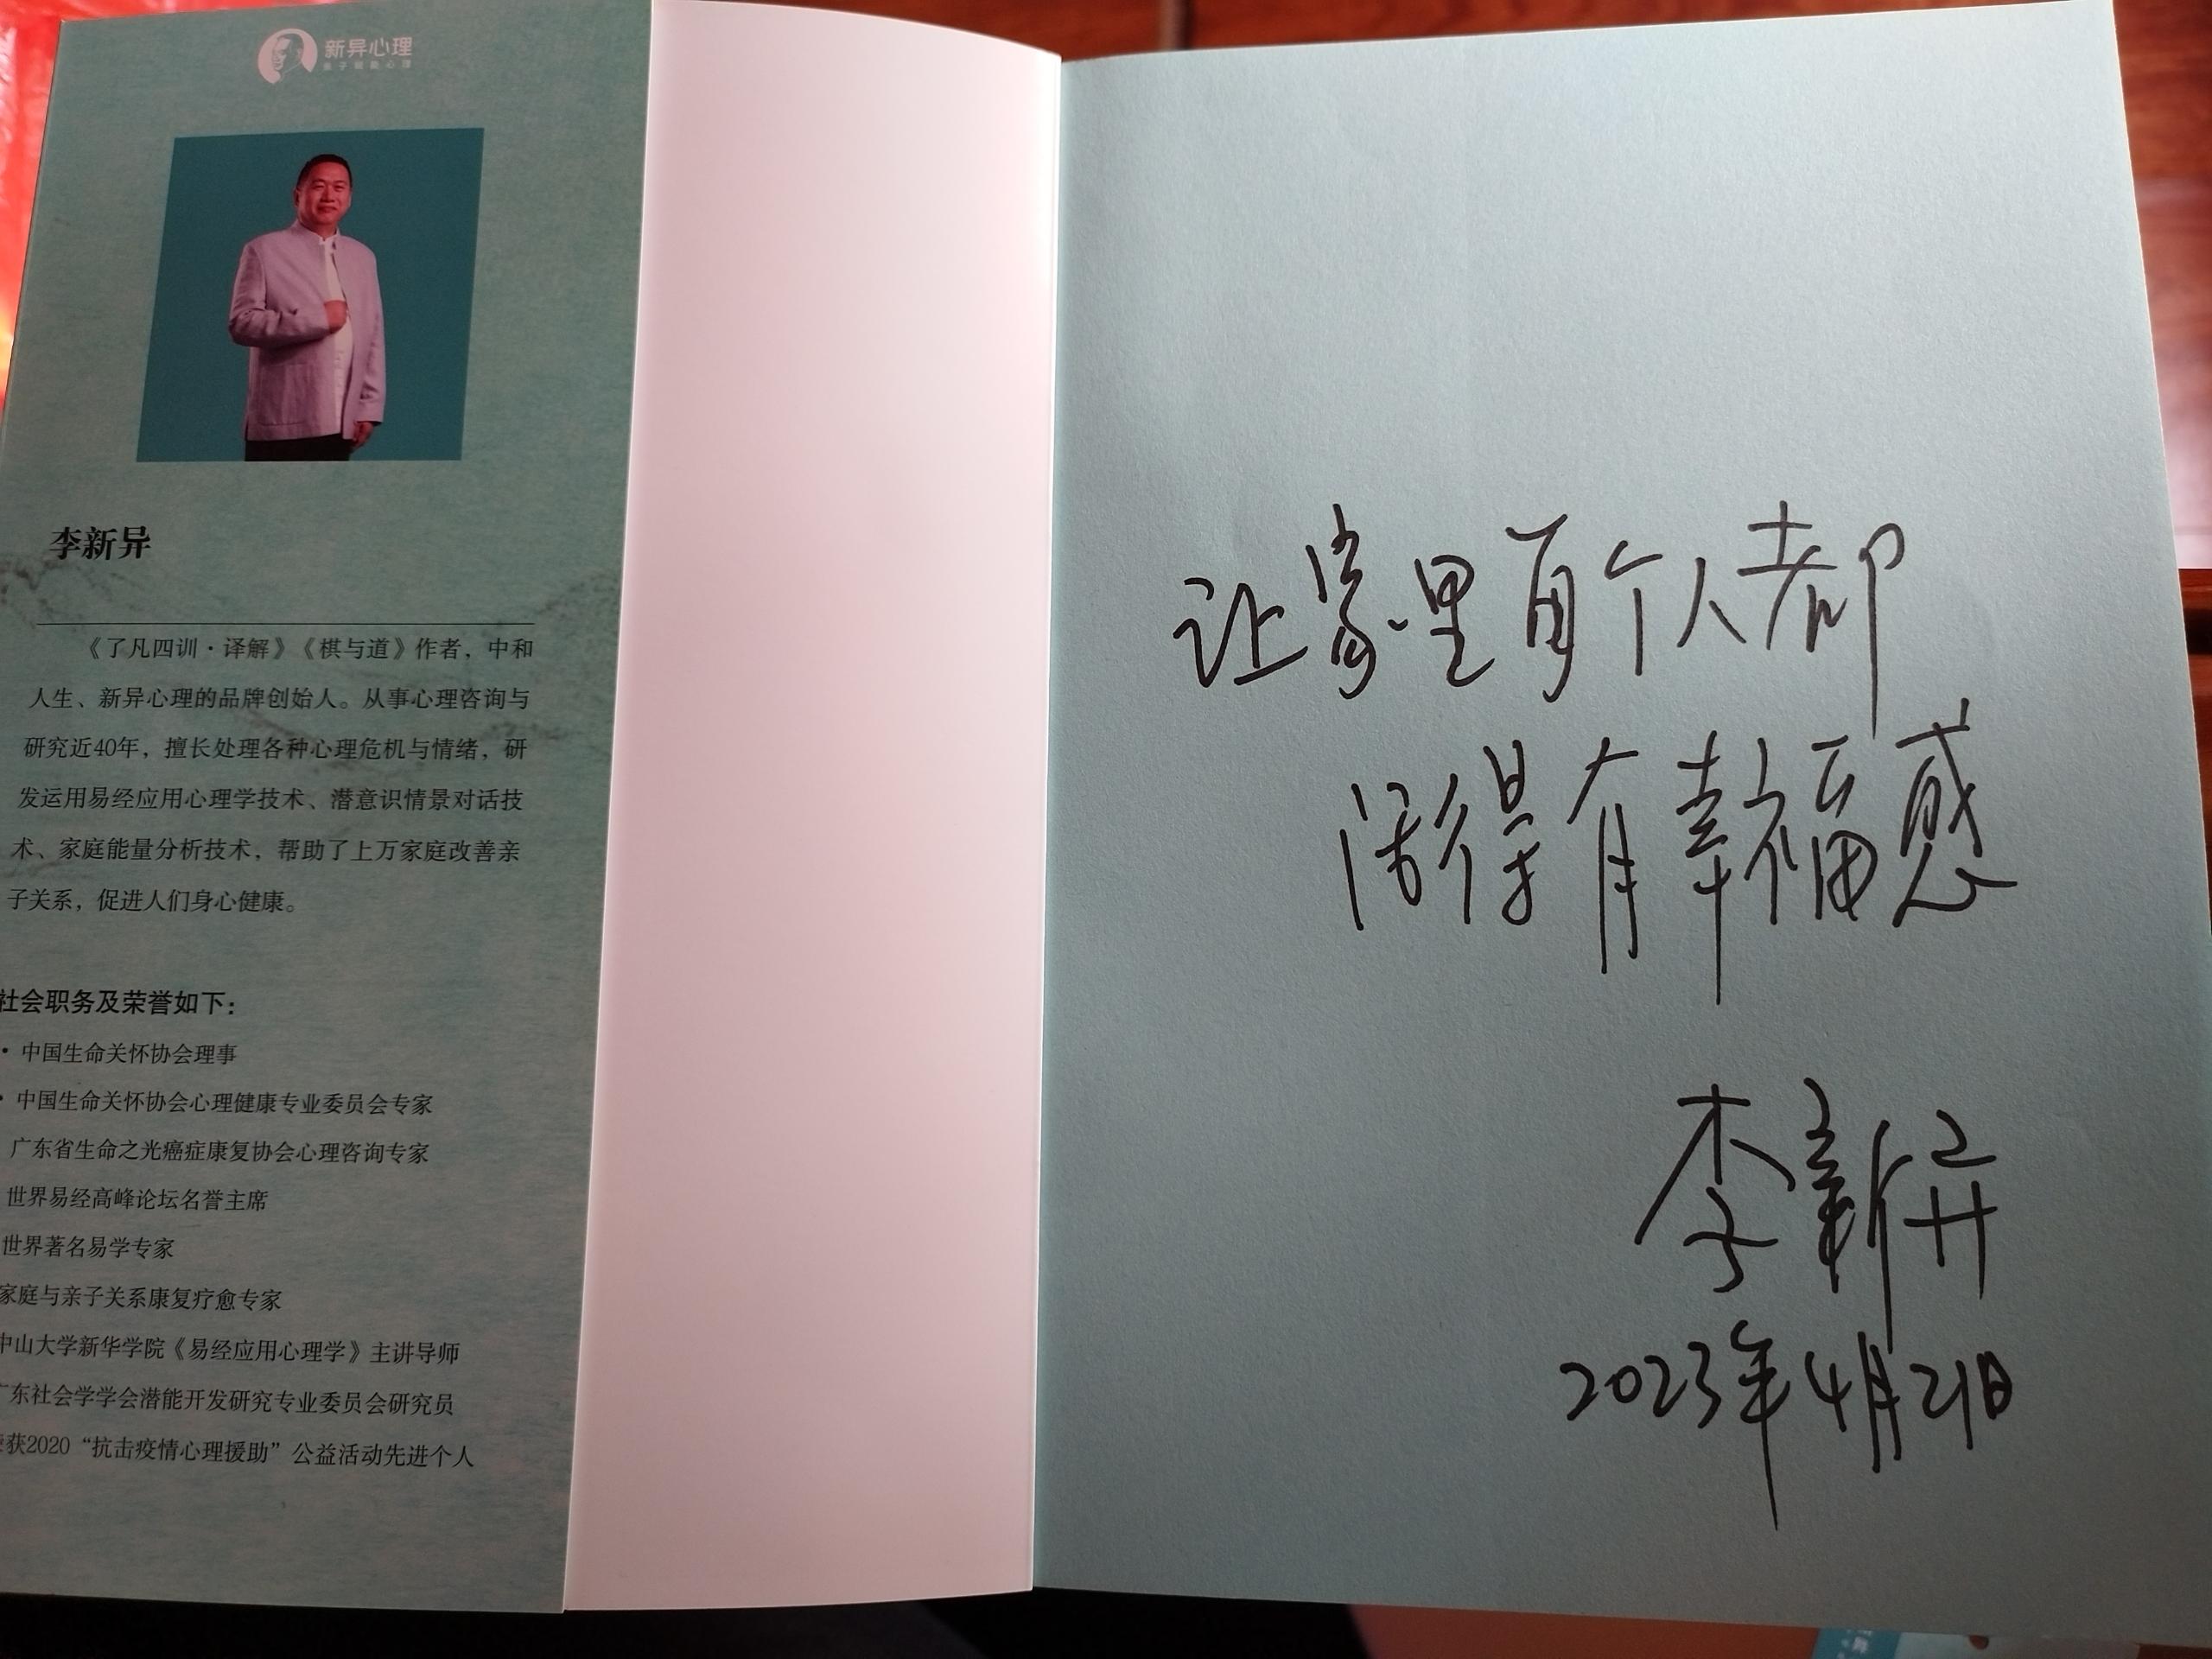 新异心理
亲子赋能心理
李新异
《了凡四训·译解》《棋与道》作者，中和
人生、新异心理的品牌创始人。从事心理咨询与
研究近40年，擅长处理各种心理危机与情绪，研
发运用易经应用心理学技术、潜意识情景对话技
术、家庭能量分析技术，帮助了上万家庭改善亲
子关系，促进人们身心健康。
社会职务及荣誉如下：
· 中国生命关怀协会理事
· 中国生命关怀协会心理健康专业委员会专家
广东省生命之光癌症康复协会心理咨询专家
世界易经高峰论坛名誉主席
世界著名易学专家
家庭与亲子关系康复疗愈专家
中山大学新华学院《易经应用心理学》主讲导师
广东社会学学会潜能开发研究专业委员会研究员
获2020“抗击疫情心理援助”公益活动先进个人
让家里每个人都
活得有幸福感
李新异
2023年4月21日